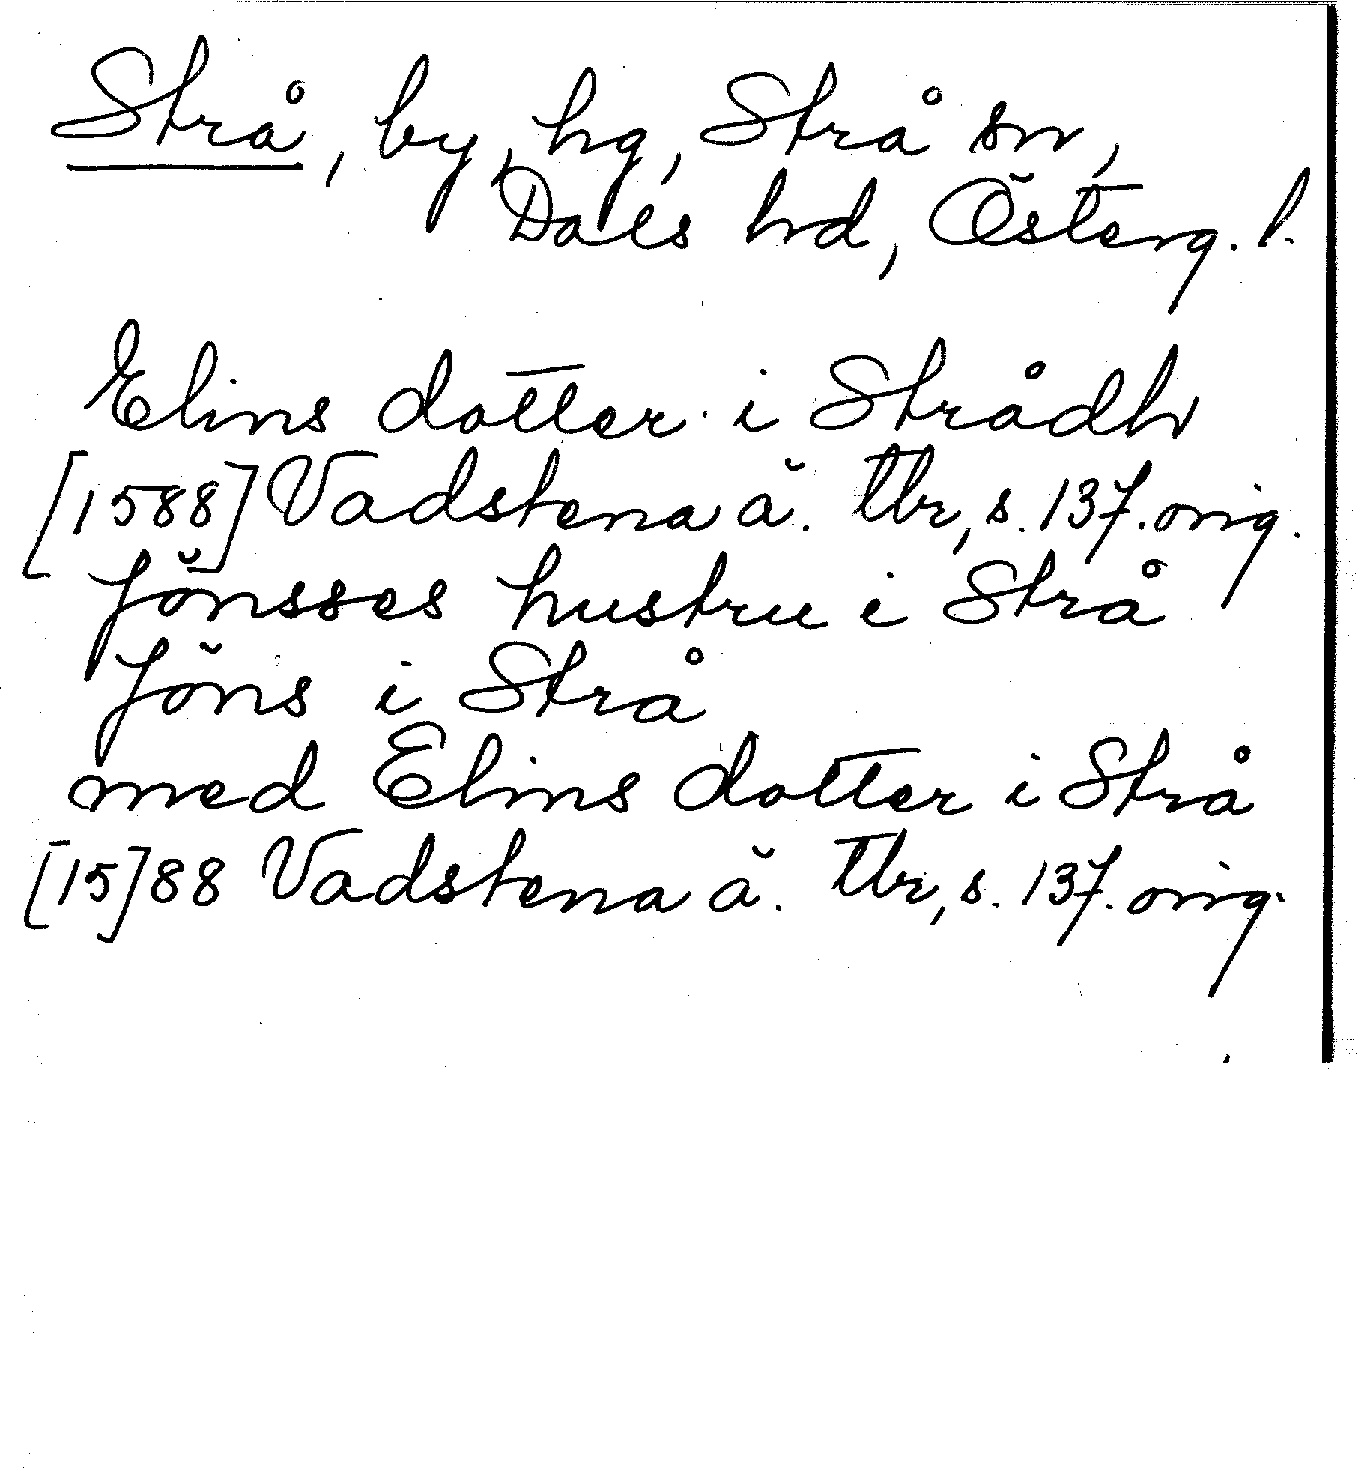 Strå, by, hg, Strå sn,
Dals hd, Österg. l.
Elins dotter i Strådh
[1588] Vadstena ä. tbr, s. 137. orig.
Jönsses hustru i Strå
Jöns i Strå
med Elins dotter i Strå
[15]88 Vadstena ä. tbr, s. 137. orig.